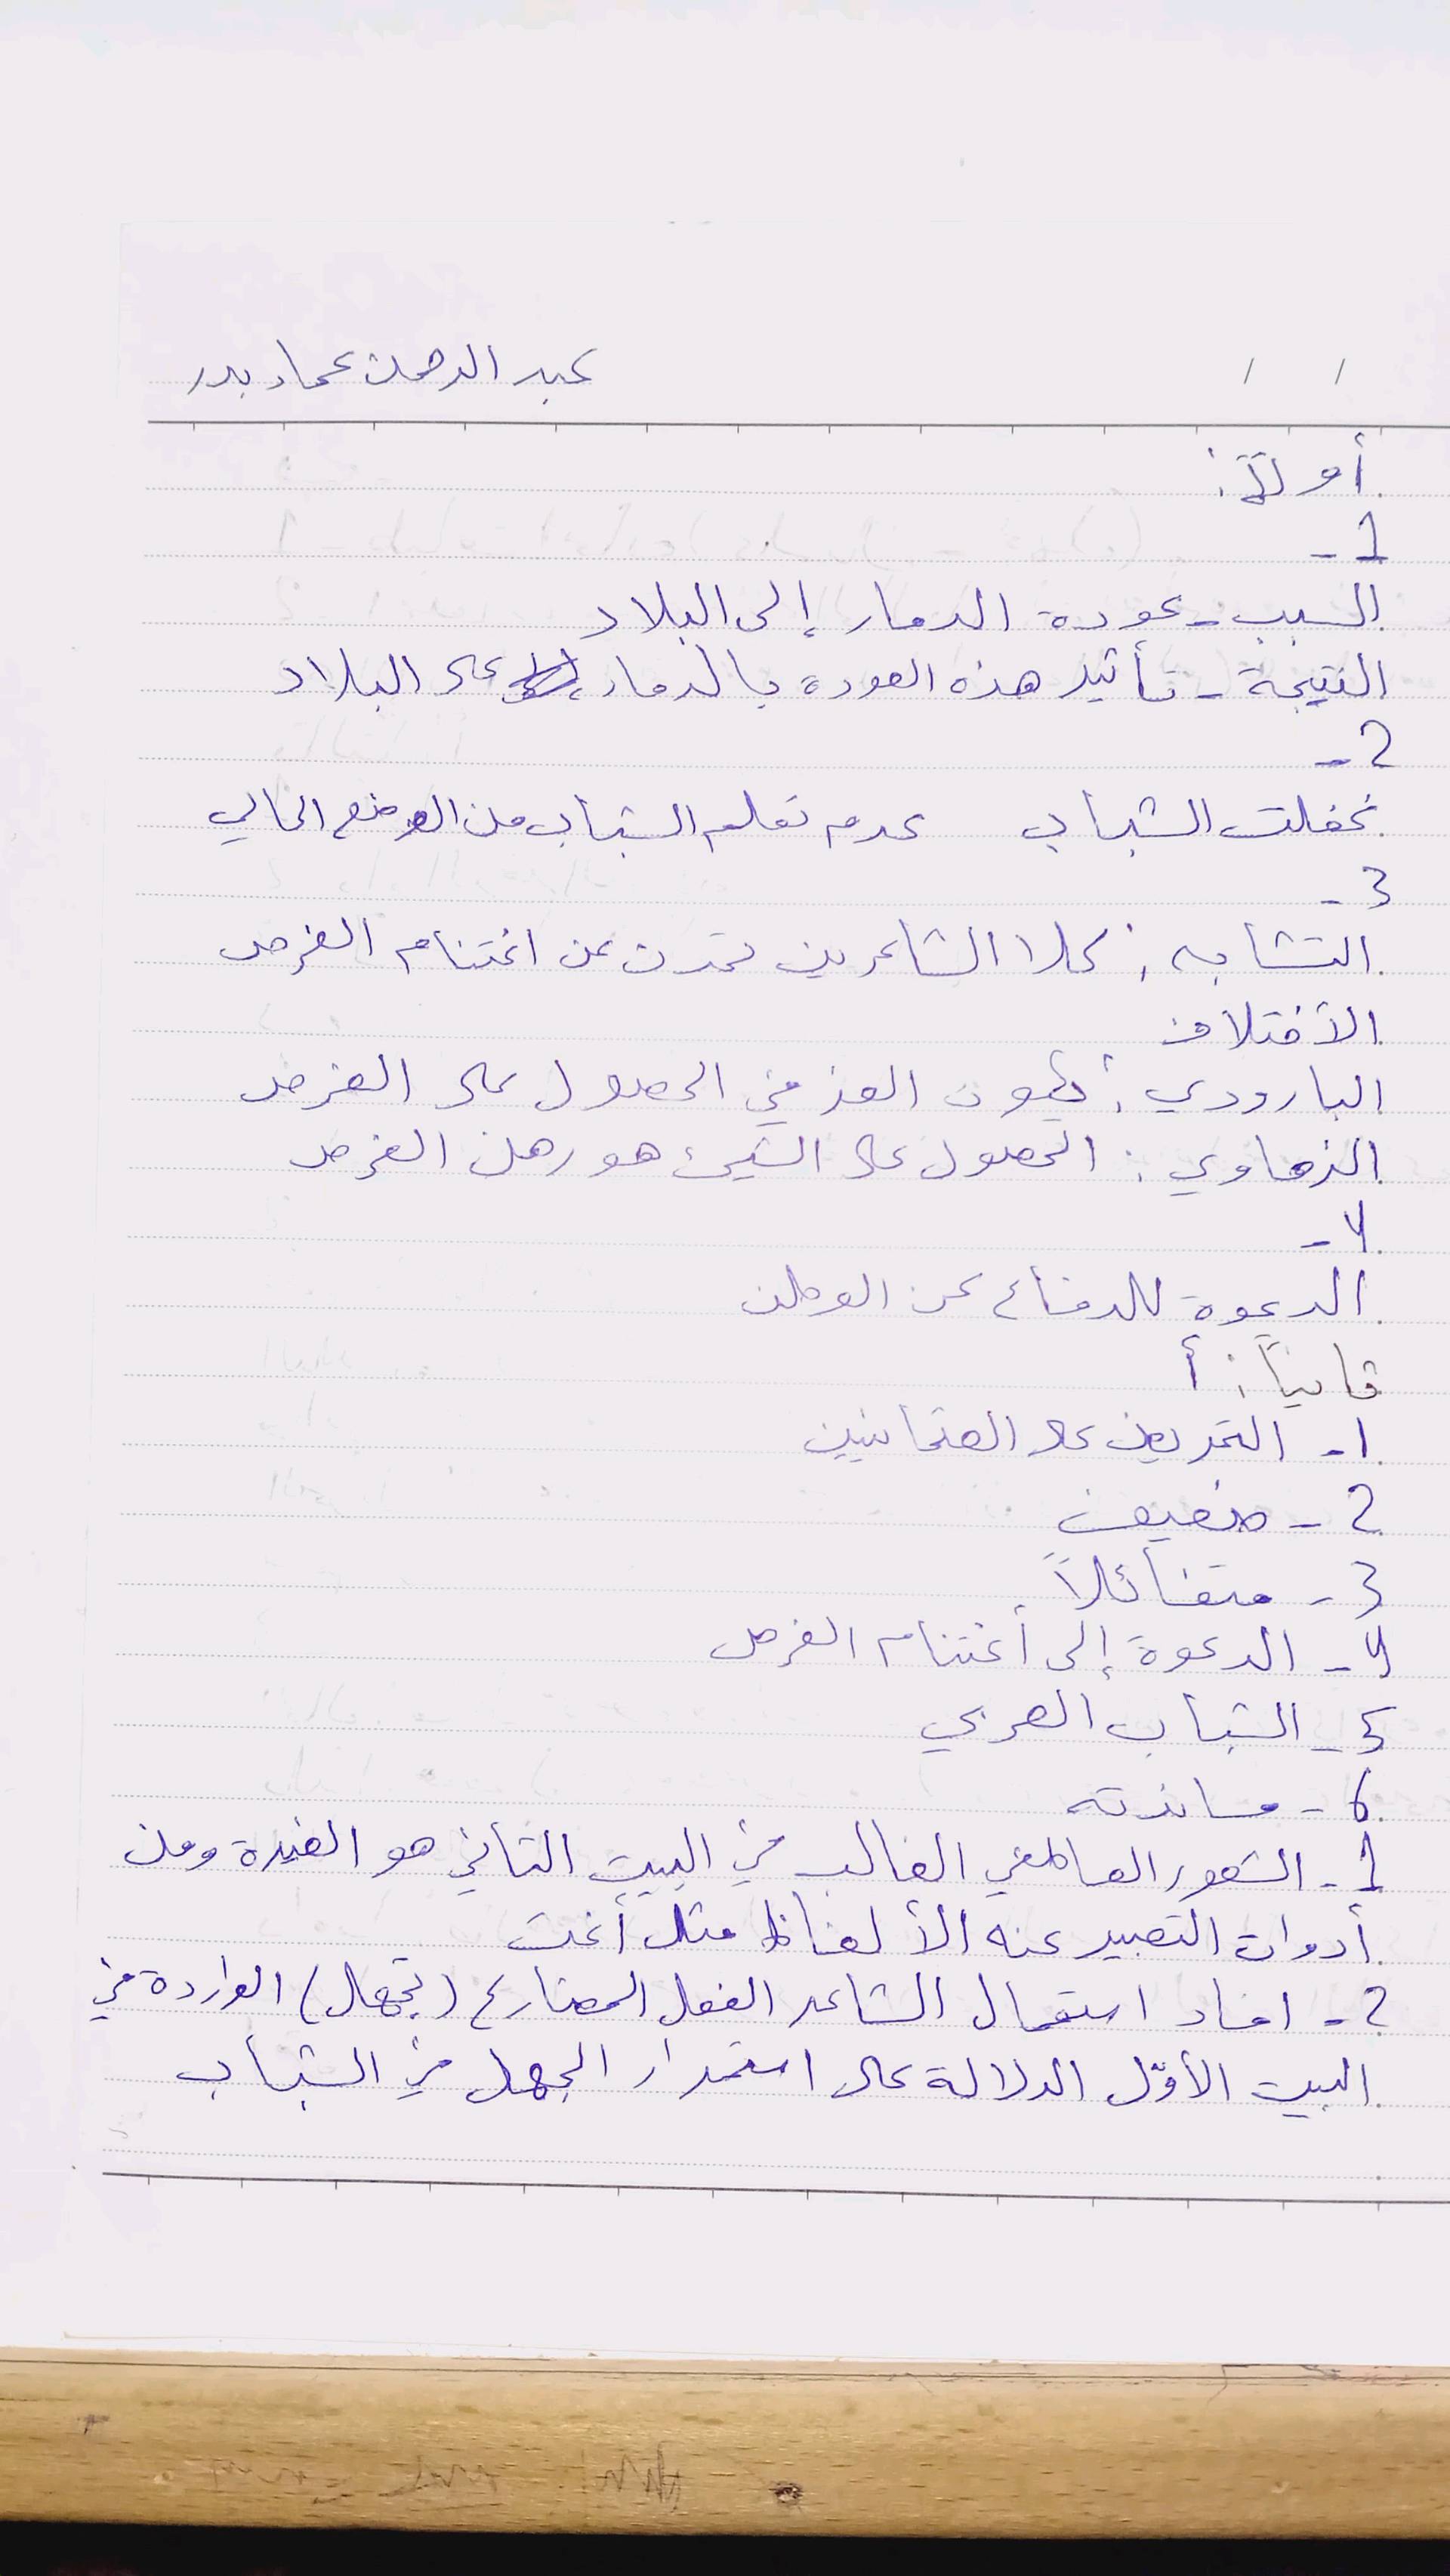 عبد الرحمن عماد بدر
/ /
أولاً:
1 -
السبب - عودة الدمار إلى البلاد
النتيجة - تأثير هذه العودة بالدمار على البلاد
2 -
غفلت الشباب عدم تعلم الشباب من الوضع الحالي
3 -
التشابه: كلا الشاعرين تحدث عن اغتنام الفرص
الأختلاف
البارودي: يكون العز في الحصول على الفرص
الزهاوي: الحصول على الشيئ هو رهن الفرص
4 -
الدعوة للدفاع عن الوطن
ثانياً: أ
1 - التحريض على العثمانيين
2 - ضعيف
3 - متفائلاً
4 - الدعوة إلى أغتنام الفرص
5 - الشباب العربي
6 - مساندته
1 - الشعور العاطفي الغالب في البيت الثاني هو الغيرة ومن
أدوات التعبير عنه الألفاظ مثل أغث
2 - افاد استعمال الشاعر الفعل المضارع (تجهل) الواردة في
البيت الأوّل الدلالة على استمرار الجهل في الشباب